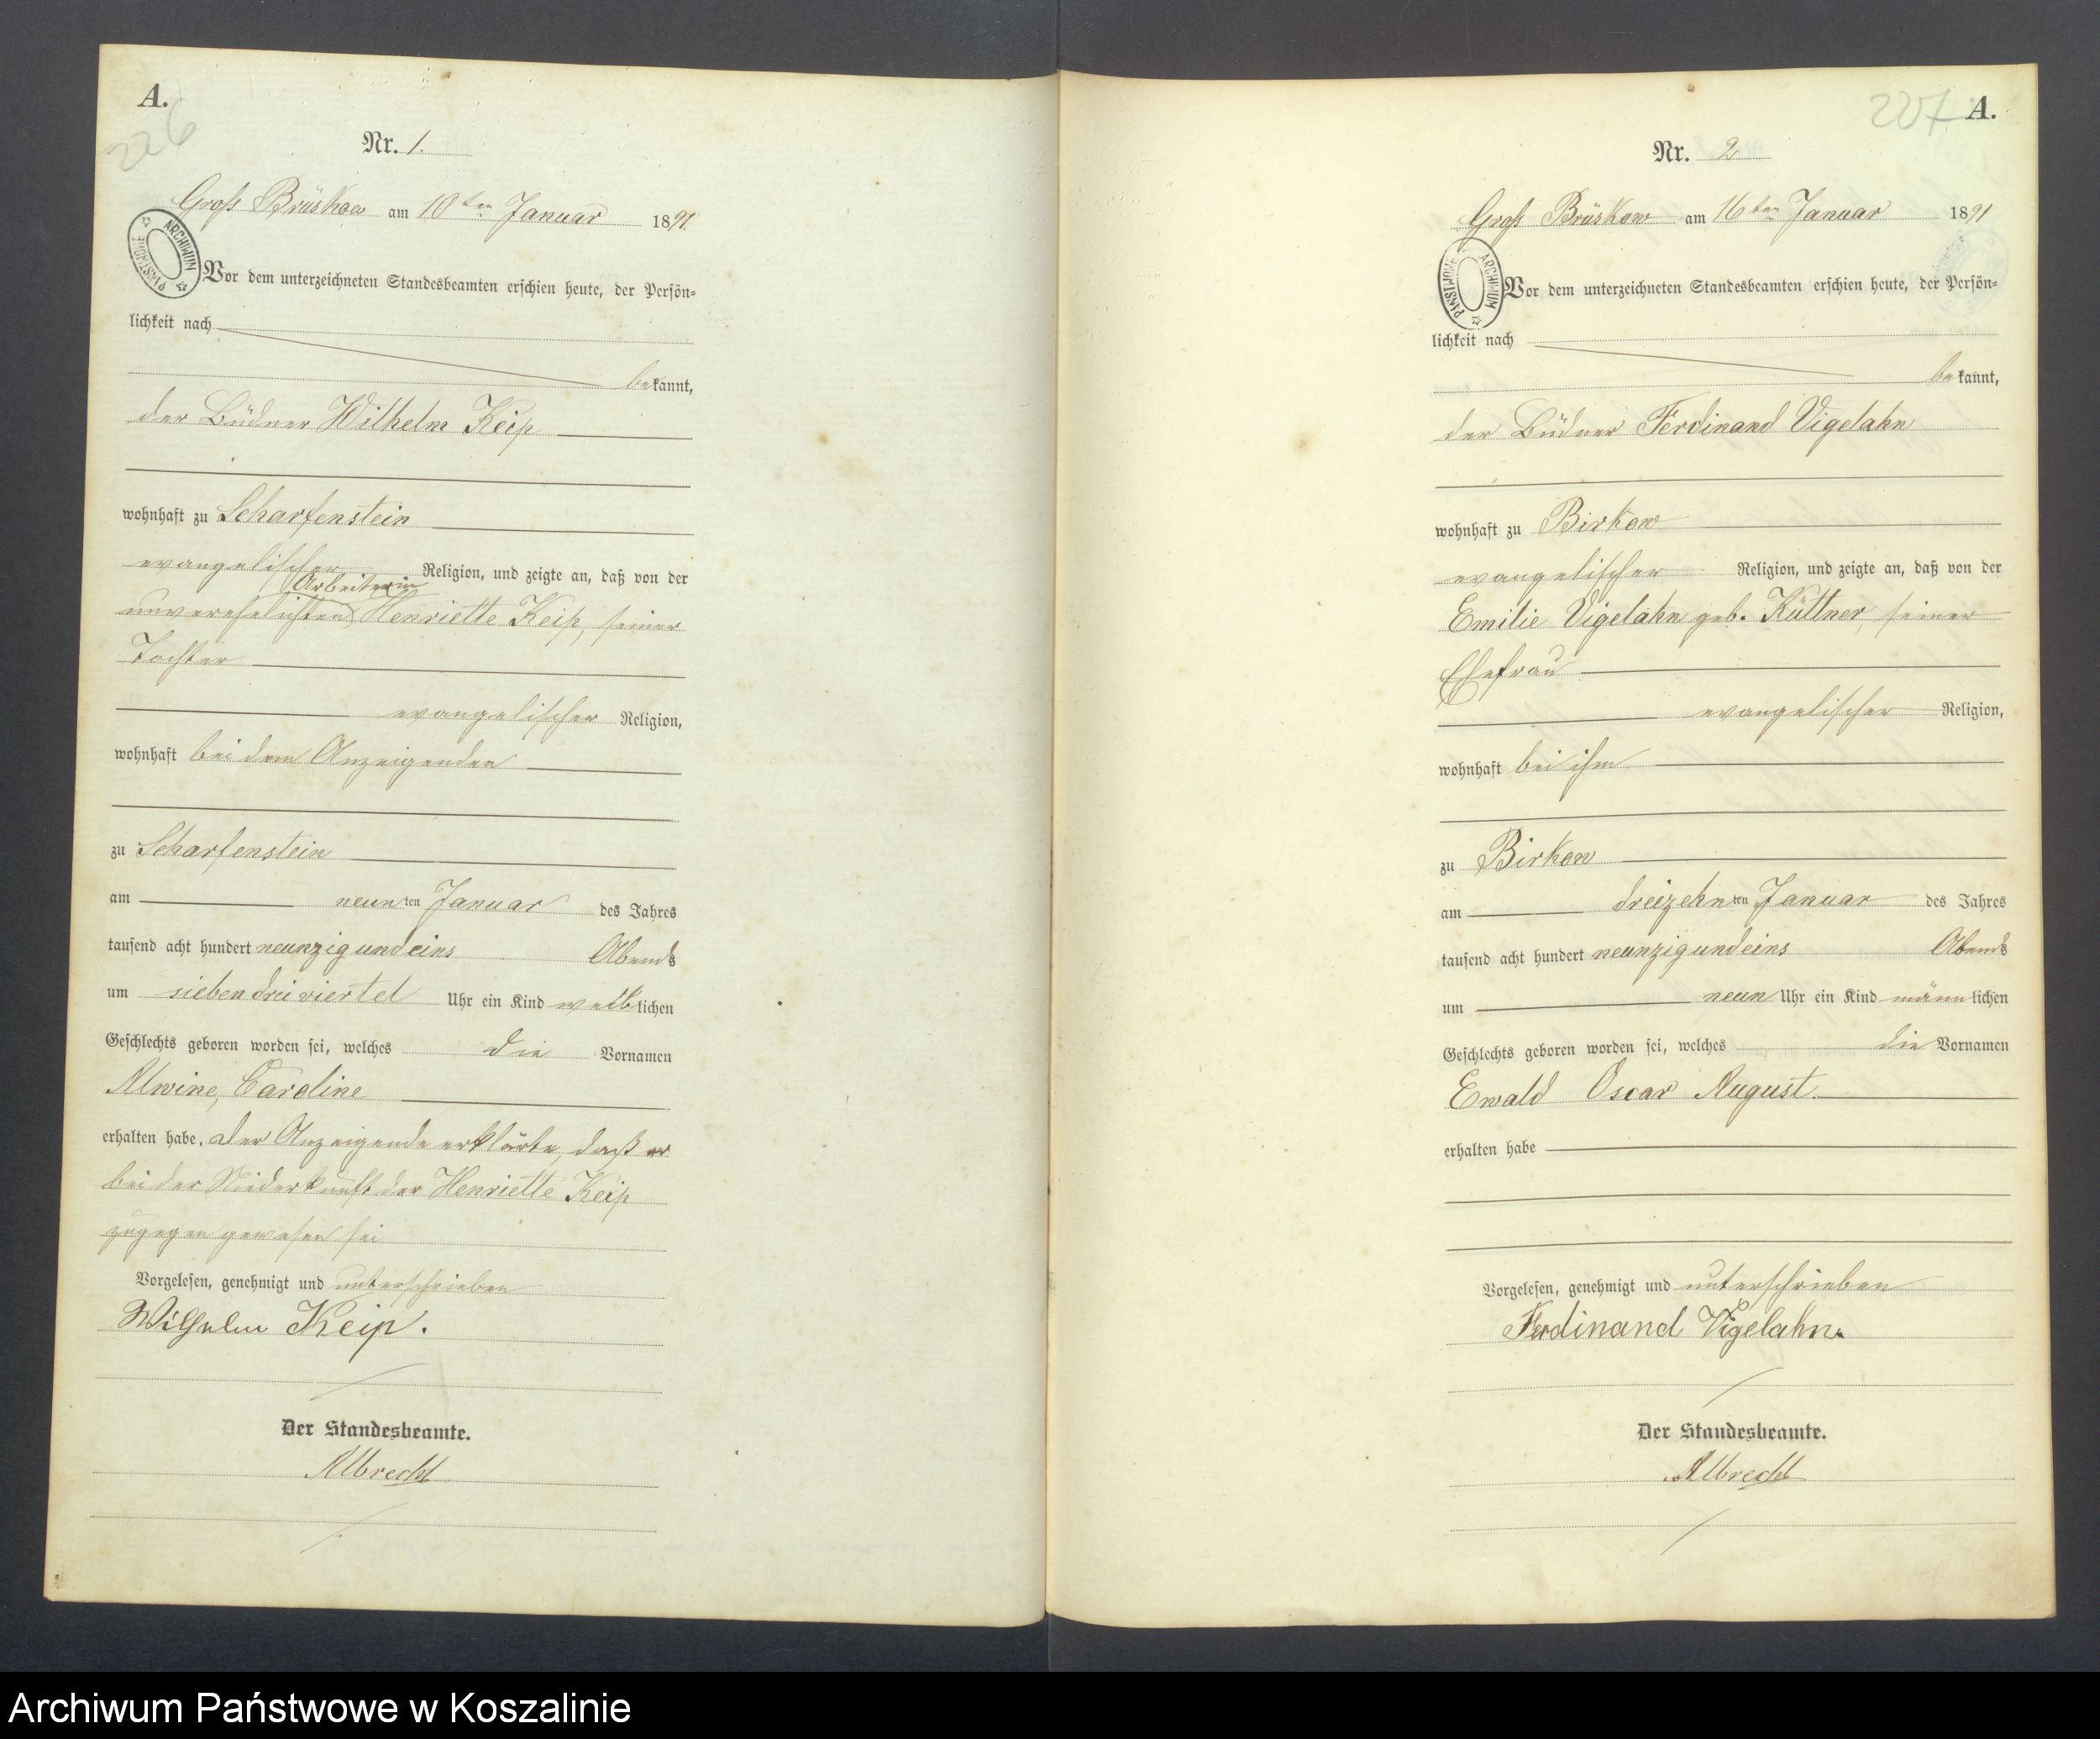 A.
226
Nr. 1.
Groß Brüskow am 10ten Januar 1891.
ARCHIWUM PAŃSTWOWE
Vor dem unterzeichneten Standesbeamten erschien heute, der Persön=
lichkeit nach
bekannt,
der Büdner Wilhelm Keip
wohnhaft zu Scharfenstein
evangelischer Religion, und zeigte an, daß von der
Arbeiterin
unverehelichten Henriette Keip, seiner
Tochter
evangelischer Religion,
wohnhaft bei dem Anzeigenden
zu Scharfenstein
am neunten Januar des Jahres
tausend acht hundert neunzig und eins Abends
um sieben dreiviertel Uhr ein Kind weiblichen
Geschlechts geboren worden sei, welches die Vornamen
Alwine, Caroline
erhalten habe. Der Anzeigende erklärte, daß er
bei der Niederkunft der Henriette Keip
zugegen gewesen sei
Vorgelesen, genehmigt und unterschrieben
Wilhelm Keip.
Der Standesbeamte.
Albrecht
227
A.
Nr. 2
Groß Brüskow am 16ten Januar 1891
ARCHIWUM PAŃSTWOWE
Vor dem unterzeichneten Standesbeamten erschien heute, der Persön=
lichkeit nach
bekannt,
der Büdner Ferdinand Vigelahn
wohnhaft zu Birkow
evangelischer Religion, und zeigte an, daß von der
Emilie Vigelahn geb. Küttner, seiner
Ehefrau
evangelischer Religion,
wohnhaft bei ihm
zu Birkow
am dreizehnten Januar des Jahres
tausend acht hundert neunzig und eins Abends
um neun Uhr ein Kind männlichen
Geschlechts geboren worden sei, welches die Vornamen
Ewald Oscar August
erhalten habe
Vorgelesen, genehmigt und unterschrieben
Ferdinand Vigelahn.
Der Standesbeamte.
Albrecht
Archiwum Państwowe w Koszalinie